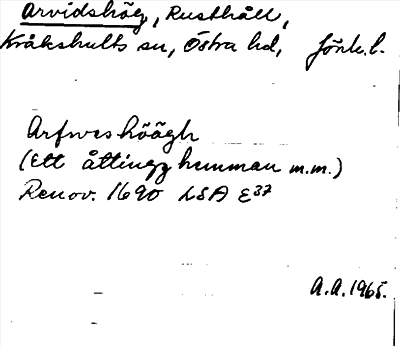 Arvidshög, Rusthåll,
Kråkshults sn, Östra hd, Jönk.l.
Arfwes höögh
(Ett åttingz hemman m.m.)
Renov. 1690 LSA E37
A.A. 1965.